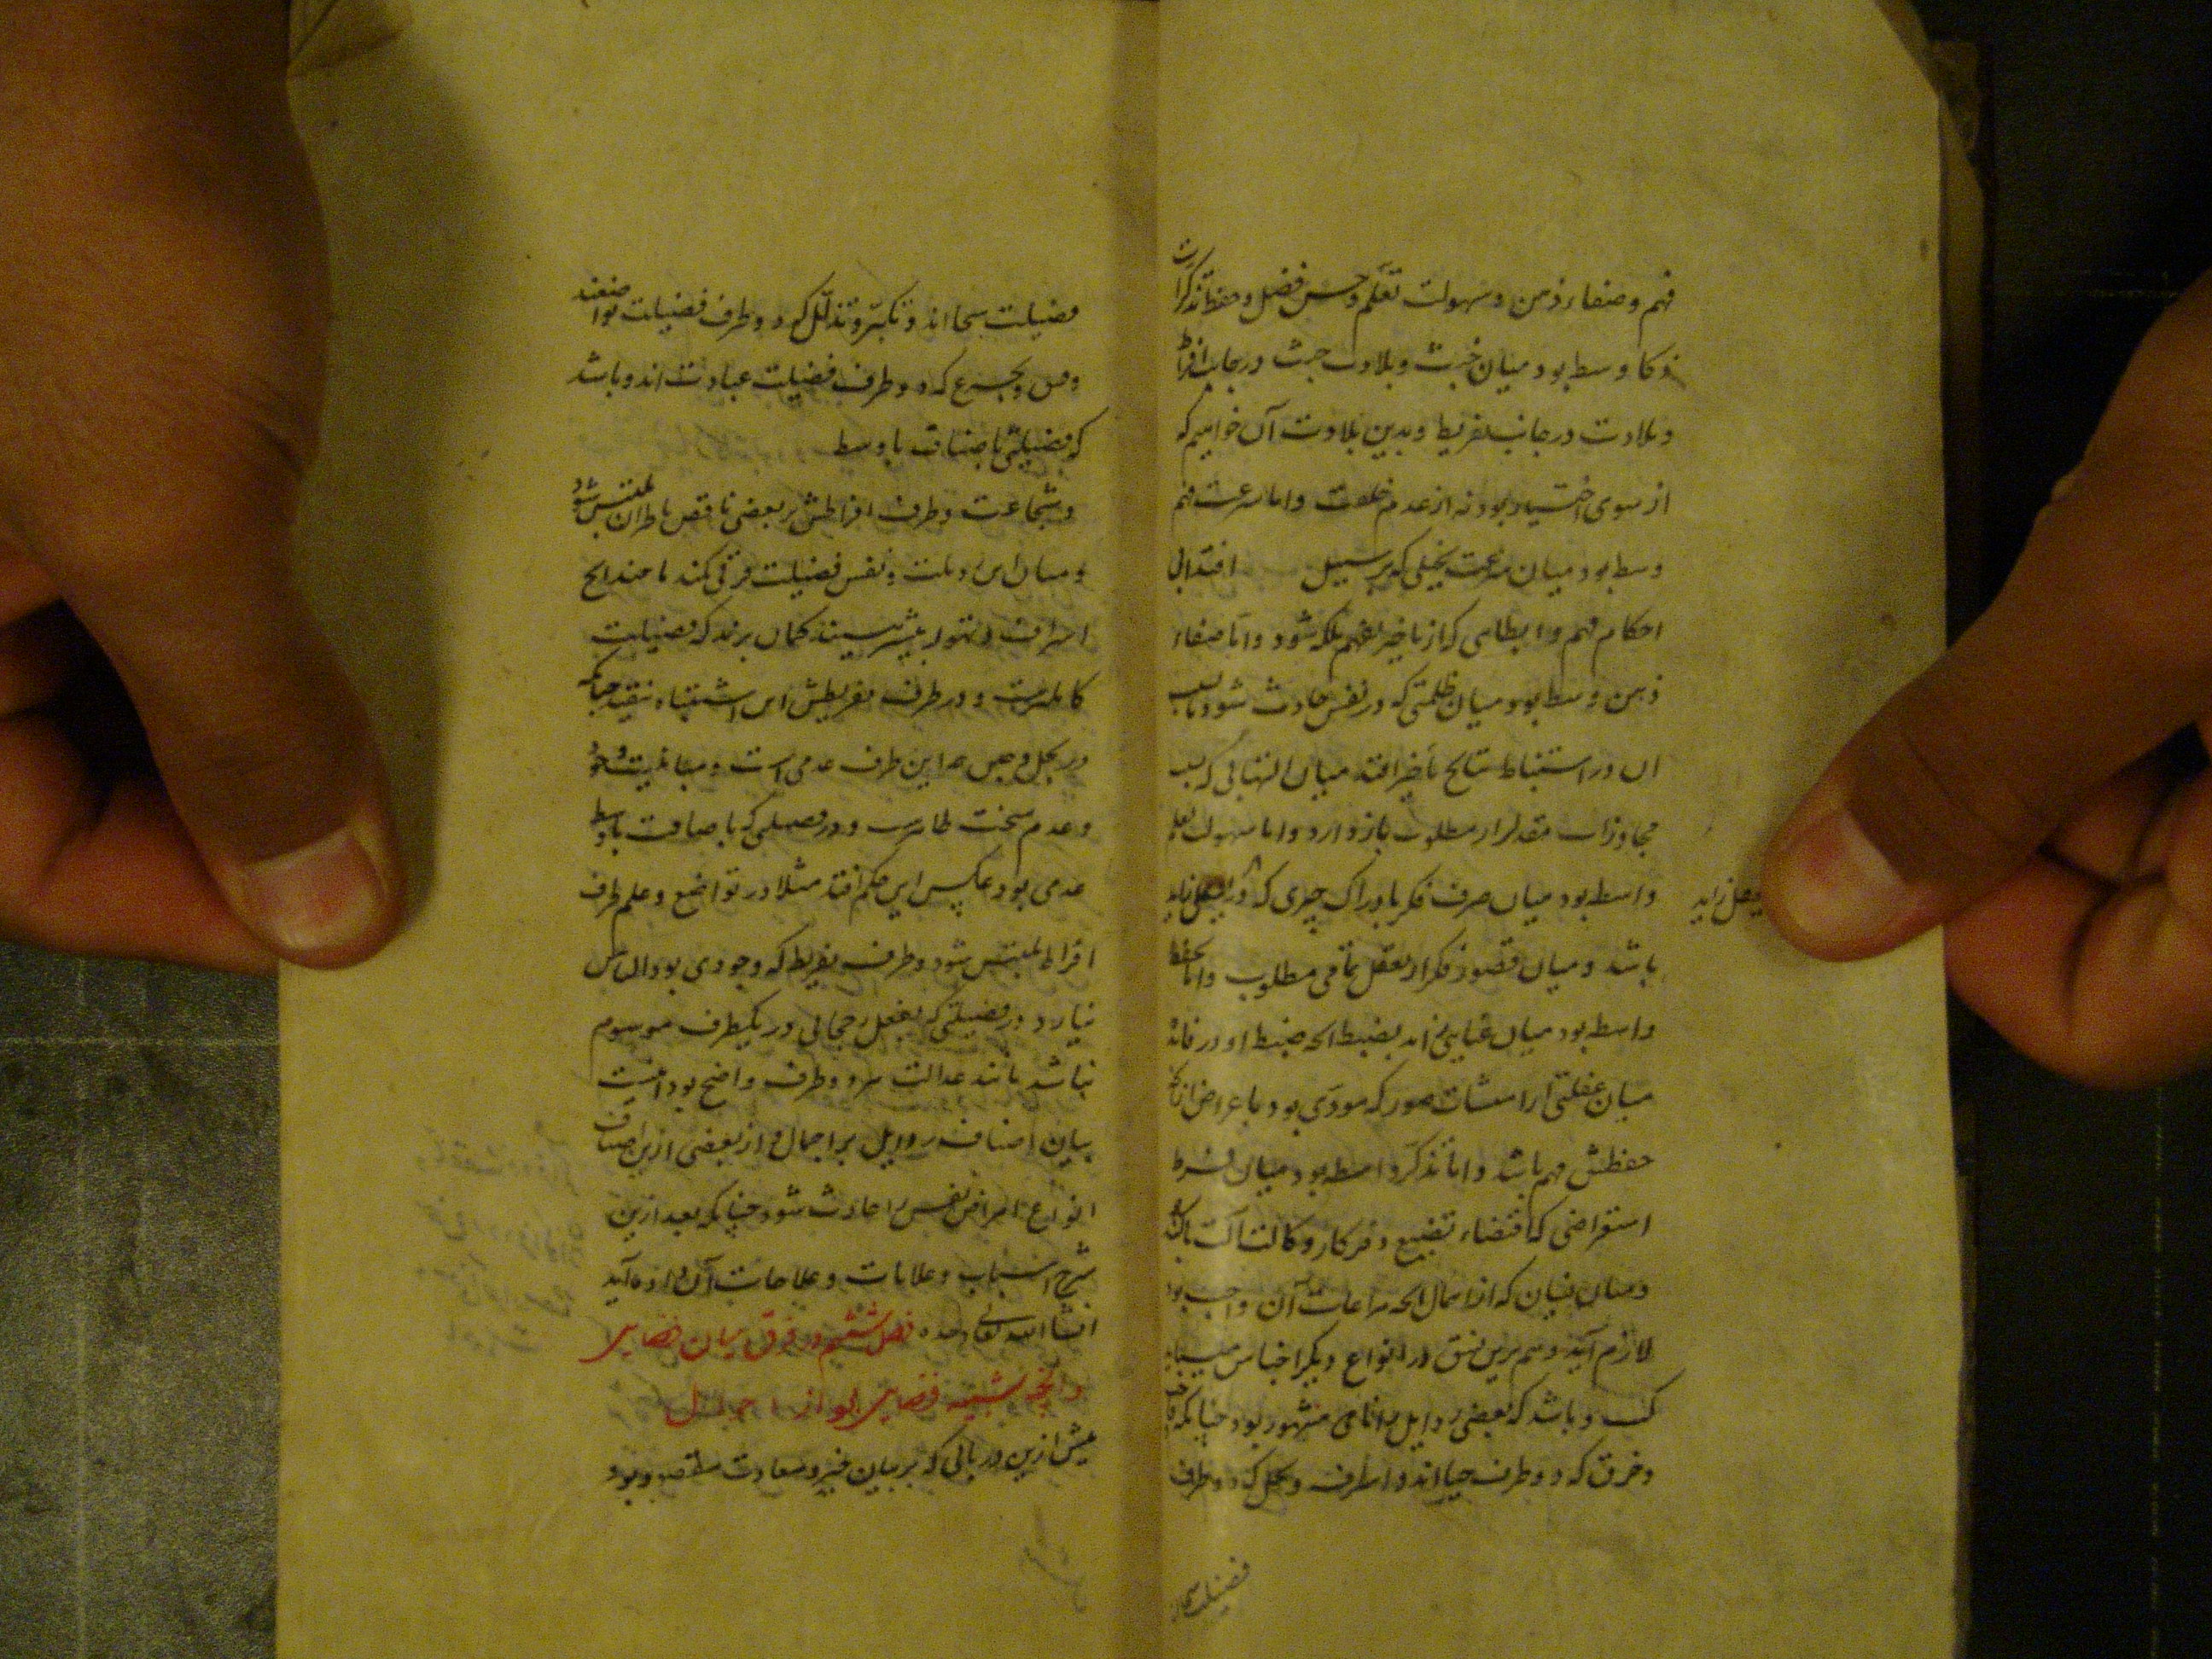 فهم و صفاء ذهن و سهولت تعلّم و حسن فضل و حفظ و تذکر است
ذکا وسط بود میان خبث و بلادت خبث در جانب افراط
و بلادت در جانب تفریط و بدین بلادت آن خواهیم که
از سوی اختیار بود نه از عدم خلقت و اما سرعت فهم
وسط بود میان سرعت تخیلی که بر سبیل افتد بی
احکام فهم و ابطایی که از تاخیر تفهم ملکه شود و اما صفاء
ذهن وسط بود میان ظلمتی که در نفس حادث شود تا بسبب
آن در استنباط نتایج تاخیر افتد میان التهابی که بسبب
مجاوزات مقدار از مطلوب باز دارد و اما سهولت تعلم
واسطه بود میان صرف فکر بادراک چیزی که
تعقل زاید
باشد و میان قصور فکر از تعقل تمامی مطلوب و اما تحفظ
واسطه بود میان عنایتی زاید بضبط آنچه ضبط او در
میان غفلتی از استثبات صور که مودی بود باعراض از آنچه
حفظش مهم باشد و اما تذکر واسطه بود میان فرط
استعراضی که اقتضاء تضییع روزگار و کلالت آلت
و میان نسیان که از اهمال آنچه مراعات آن واجب بود
لازم آید و هم برین نسق در انواع دیگر اجناس
کند و باشد که بعضی رذایل را نامی مشهور بود چنانکه
و خرق که دو طرف حیا اند و اسراف و بخل که دو طرف
فضیلت سخا
فضیلت سخا اند و تکبّر و تذلّل که دو طرف فضیلت تواضعند
و فسق و تحرج که دو طرف فضیلت عبادت اند و باشد
که فضیلتی باضافت با وسط
و شجاعت و طرف افراطش بر بعضی ناقص نظران ملتبس شود
و میان این رذیلت و نفس فضیلت فرقی نکنند تا چندانچ
اسراف و تهور بیشتر بینند گمان برند که فضیلت
کاملترست و در طرف تفریطش این اشتباه نیفتد چنانکه
در بخل و جبن چه این طرف عدمی است و مباینت وجود
و عدم سخت ظاهر و در فضیلتی که باضافت با وسط
عدمی بود عکس این حکم افتد مثلا در تواضع و حلم طرف
افراط ملتبس شود و طرف تفریط که وجودی بود التباس
نیارد و در فضیلتی که بفضل رجحانی در یکطرف موسوم
نباشد مانند عدالت هر دو طرف واضح بود اینست
بیان اصناف رذایل بر اجمال و از بعضی ازین اصناف
انواع امراض نفس را حادث شود چنانکه بعد ازین
شرح اسباب و علامات و علاجات آن داده آید
انشا الله تعالی وحده فصل ششم در فرق میان فضایل
و آنچه شبیه فضایل بود از احوال
پیش ازین در بابی که بر بیان خیر و سعادت مقصور بود